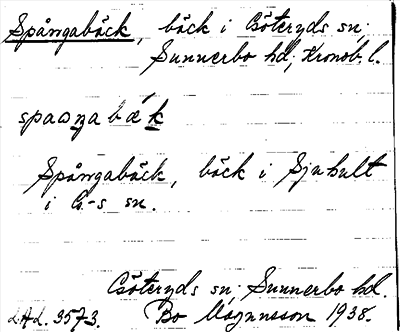 Spångabäck, bäck i Göteryds sn.
Sunnerbo hd, Kronob. l.
spaɷŋabǽk
Spångabäck, bäck i Sjuhult
i G-s sn.
Göteryds sn. Sunnerbo hd.
L.A.L. 3573. Bo Magnusson 1938.